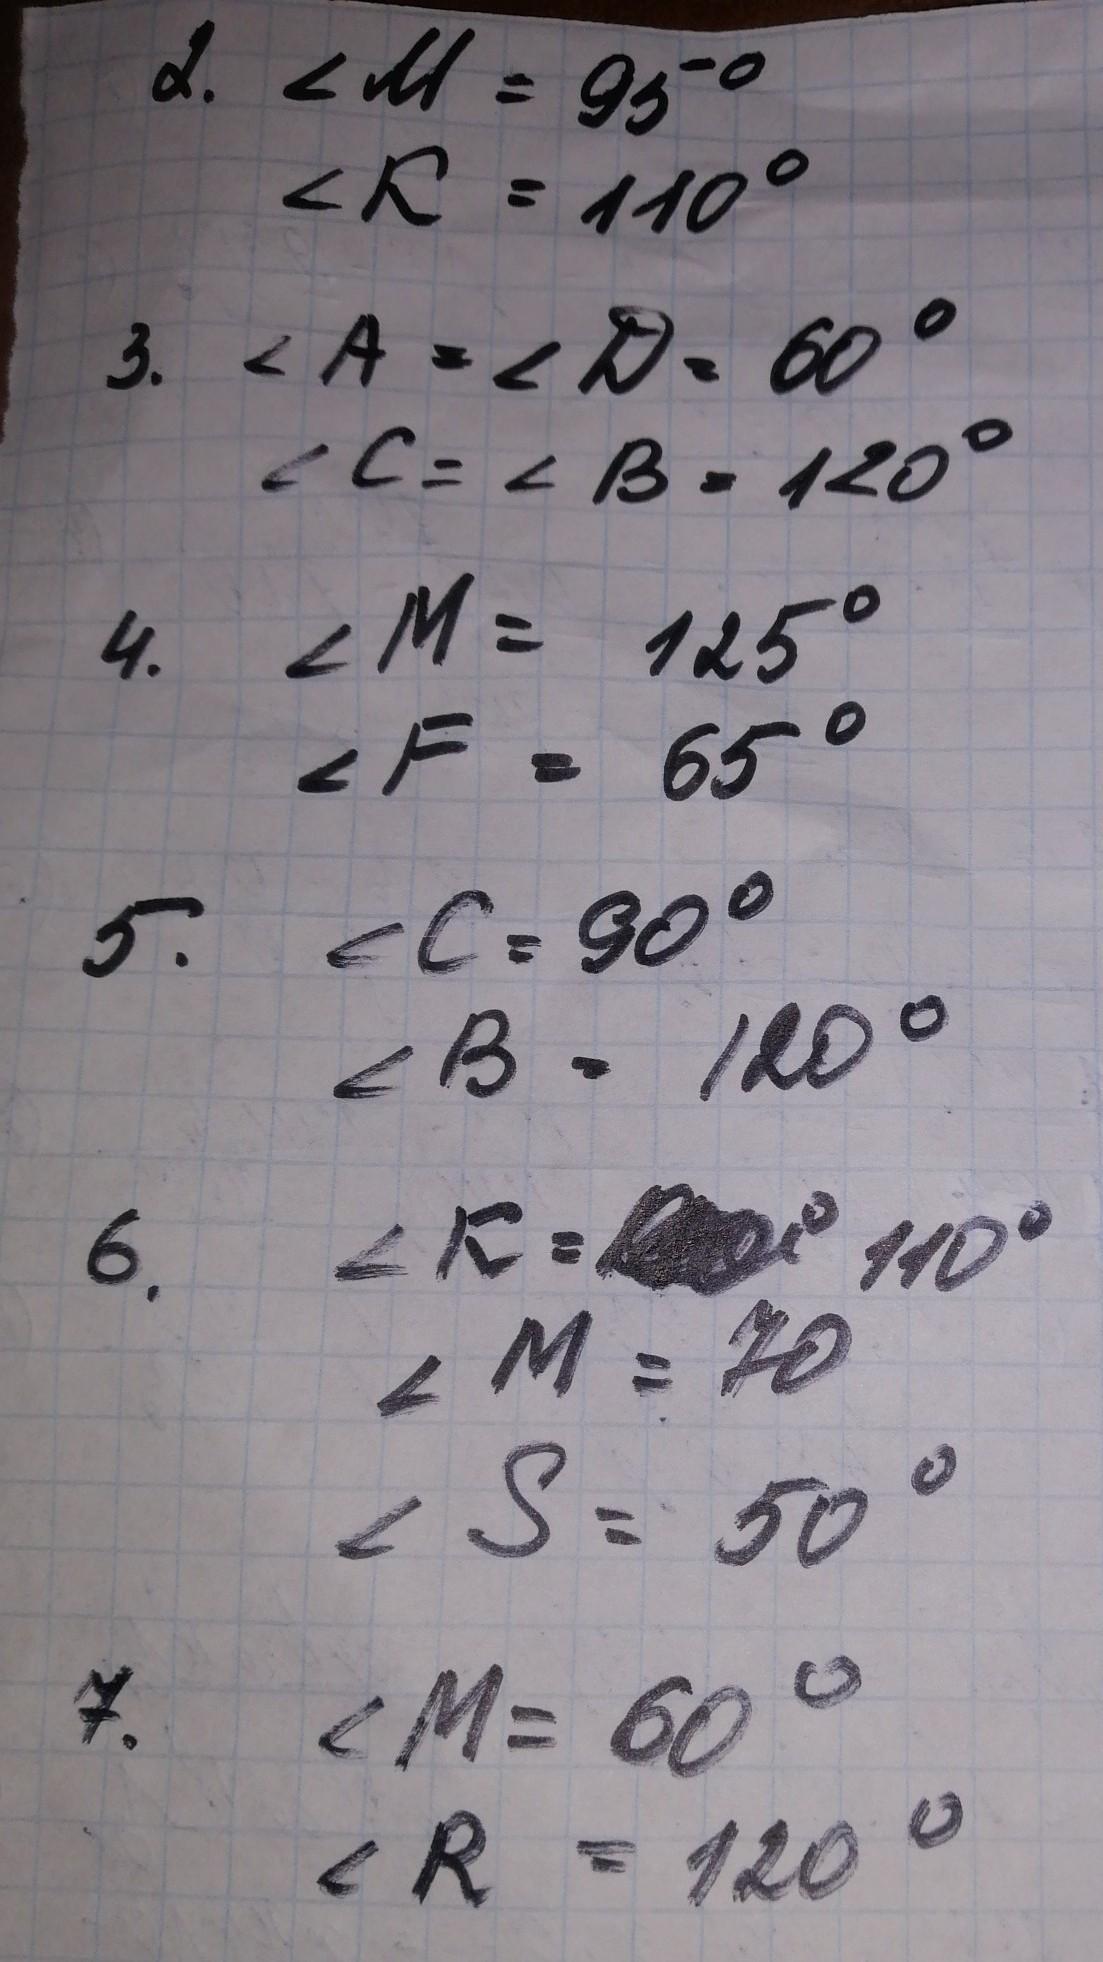 2. ∠M = 95°
∠K = 110°
3. ∠A = ∠D = 60°
∠C = ∠B = 120°
4. ∠M = 125°
∠F = 65°
5. ∠C = 90°
∠B = 120°
6. ∠K = 110°
∠M = 70
∠S = 50°
7. ∠M = 60°
∠R = 120°